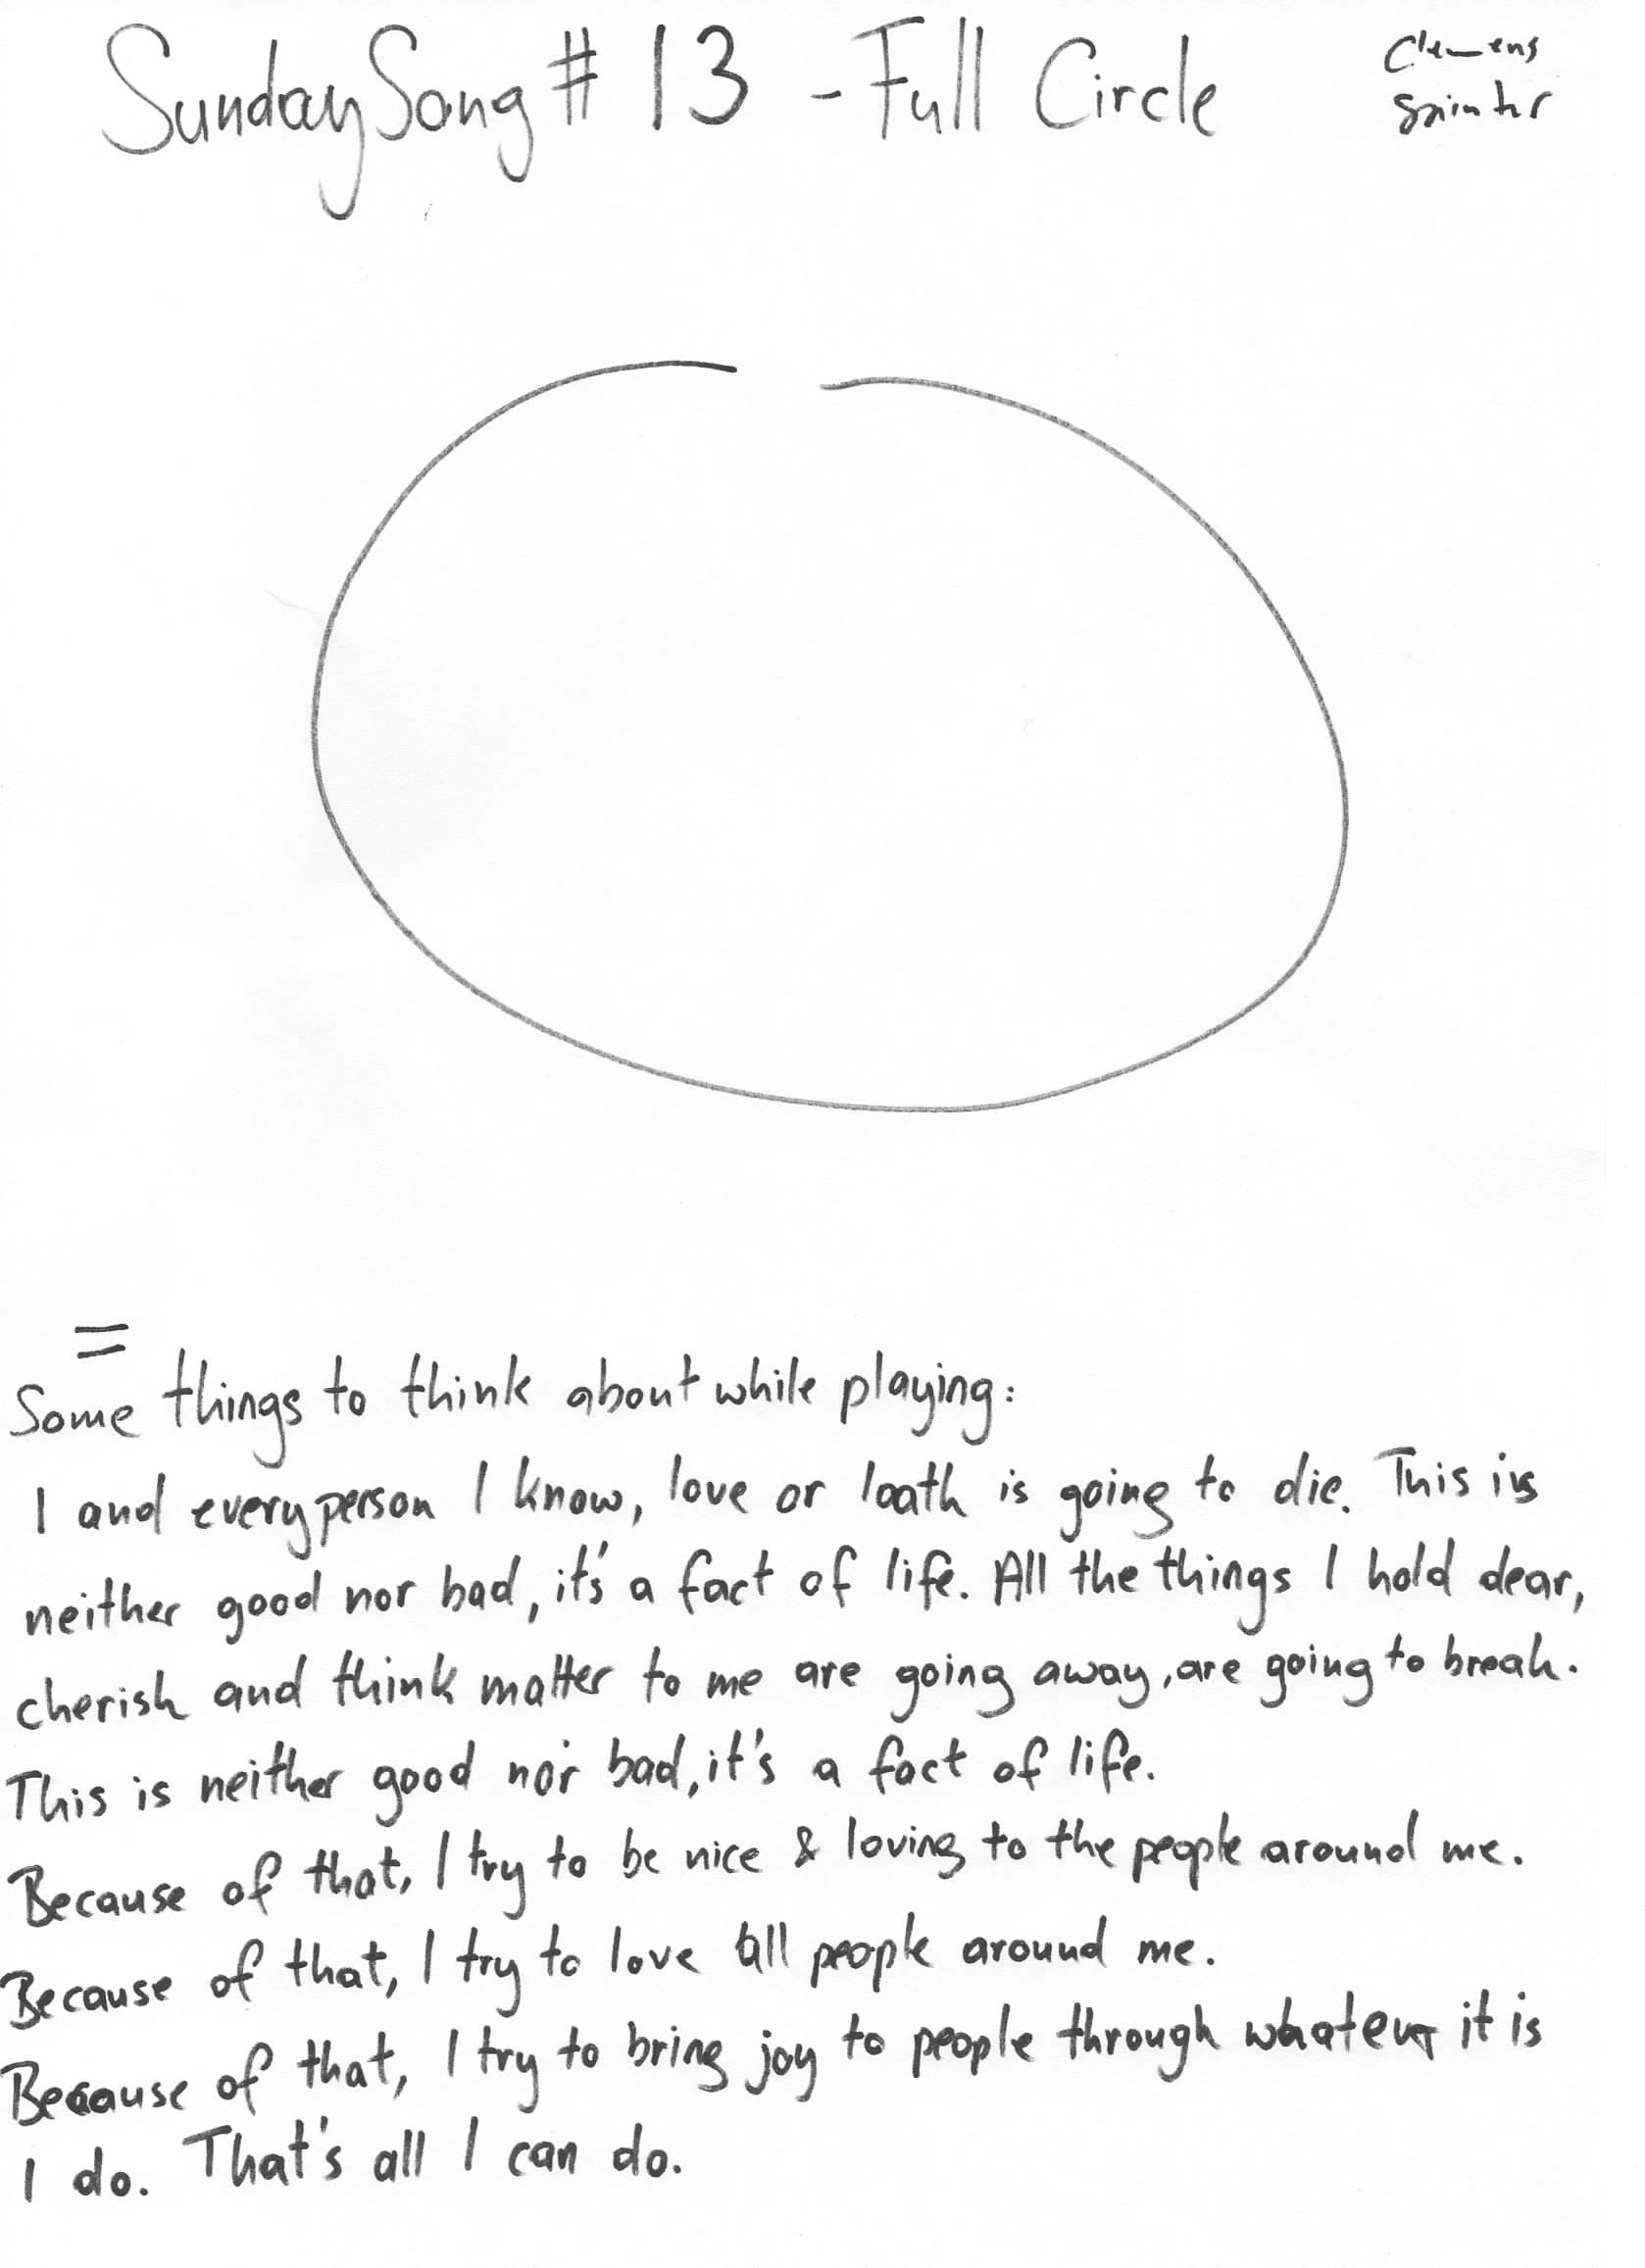 Sunday Song # 13 - Full Circle
Clemens
=
Some things to think about while playing:
I and every person I know, love or loath is going to die. This is
neither good nor bad, it's a fact of life. All the things I hold dear,
cherish and think matter to me are going away, are going to break.
This is neither good nor bad, it's a fact of life.
Because of that, I try to be nice & loving to the people around me.
Because of that, I try to love all people around me.
Because of that, I try to bring joy to people through whatever it is
I do. That's all I can do.